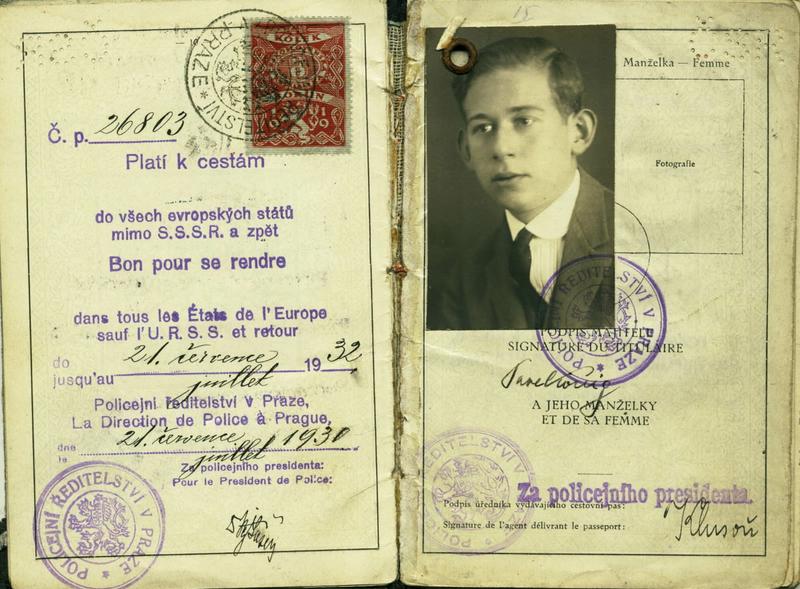 Č. p. 26803
Platí k cestám
do všech evropských států
mimo S.S.S.R. a zpět
Bon pour se rendre
dans tous les États de l'Europe
sauf l'U.R.S.S. et retour
do 21. července 1932
jusqu'au juillet
Policejní ředitelství v Praze,
La Direction de Police à Prague,
dne 21. července 1930
le juillet
Za policejního presidenta:
Pour le Président de Police:
POLICEJNÍ ŘEDITELSTVÍ V PRAZE
KOLEK
15
Manželka — Femme
Fotografie
PODPIS MAJITELE
SIGNATURE DU TITULAIRE
Pavel König
A JEHO MANŽELKY
ET DE SA FEMME
POLICEJNÍ ŘEDITELSTVÍ V PRAZE
POLICEJNÍ ŘEDITELSTVÍ
Za policejního presidenta.
Podpis úředníka vydávajícího cestovní pas:
Signature de l'agent délivrant le passeport:
Klusoň